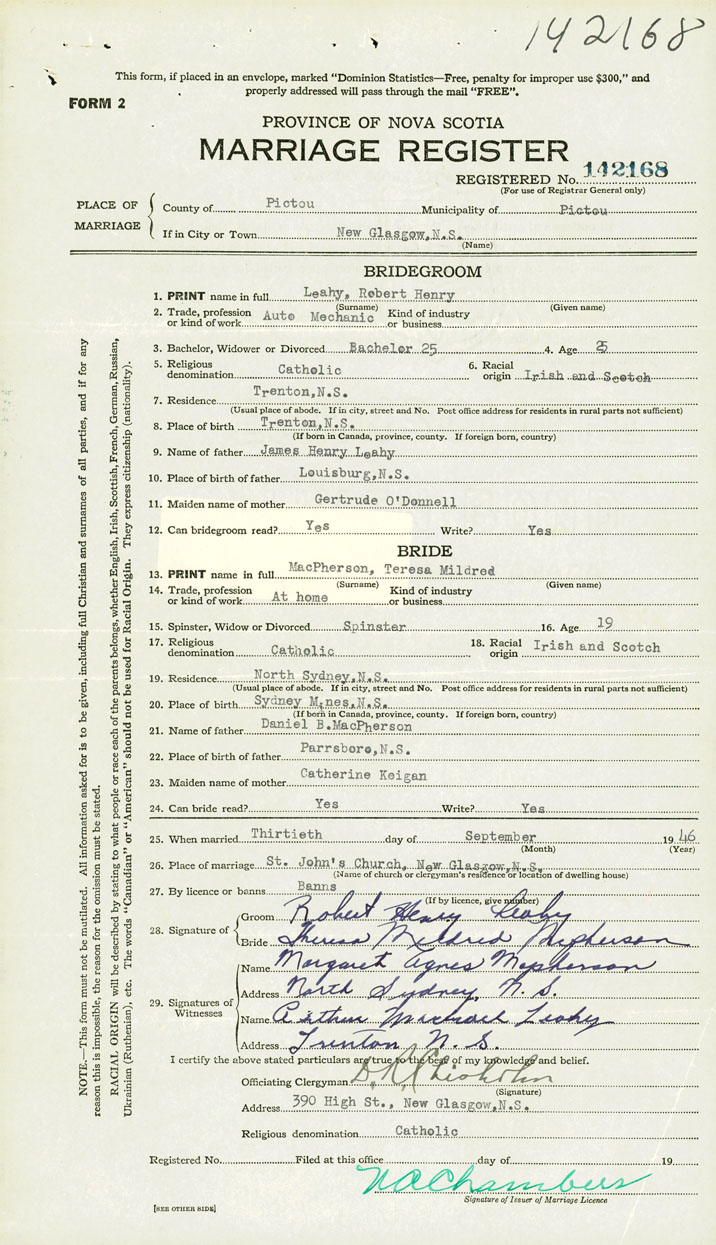 142168
This form, if placed in an envelope, marked "Dominion Statistics—Free, penalty for improper use $300," and
properly addressed will pass through the mail "FREE".
FORM 2
PROVINCE OF NOVA SCOTIA
MARRIAGE REGISTER
REGISTERED No. 142168
(For use of Registrar General only)
PLACE OF MARRIAGE
County of Pictou Municipality of Pictou
If in City or Town New Glasgow,N.S.
(Name)
BRIDEGROOM
1. PRINT name in full Leahy, Robert Henry
(Surname) (Given name)
2. Trade, profession or kind of work Auto Mechanic Kind of industry or business
3. Bachelor, Widower or Divorced Bachelor 25 4. Age 25
5. Religious denomination Catholic 6. Racial origin Irish and Scotch
7. Residence Trenton,N.S.
(Usual place of abode. If in city, street and No. Post office address for residents in rural parts not sufficient)
8. Place of birth Trenton,N.S.
(If born in Canada, province, county. If foreign born, country)
9. Name of father James Henry Leahy
10. Place of birth of father Louisburg,N.S.
11. Maiden name of mother Gertrude O'Donnell
12. Can bridegroom read? Yes Write? Yes
BRIDE
13. PRINT name in full MacPherson, Teresa Mildred
(Surname) (Given name)
14. Trade, profession or kind of work At home Kind of industry or business
15. Spinster, Widow or Divorced Spinster 16. Age 19
17. Religious denomination Catholic 18. Racial origin Irish and Scotch
19. Residence North Sydney,N.S.
(Usual place of abode. If in city, street and No. Post office address for residents in rural parts not sufficient)
20. Place of birth Sydney Mines,N.S.
(If born in Canada, province, county. If foreign born, country)
21. Name of father Daniel B.MacPherson
22. Place of birth of father Parrsboro,N.S.
23. Maiden name of mother Catherine Keigan
24. Can bride read? Yes Write? Yes
25. When married Thirtieth day of September 1946
(Month) (Year)
26. Place of marriage St. John's Church, New Glasgow,N.S.
(Name of church or clergyman's residence or location of dwelling house)
27. By licence or banns Banns
(If by licence, give number)
28. Signature of
Groom Robert Henry Leahy
Bride Theresa Mildred Mcpherson
29. Signatures of Witnesses
Name Margaret Agnes Mcpherson
Address North Sydney, N. S.
Name Arthur Leahy
Address Trenton N. S.
I certify the above stated particulars are true to the best of my knowledge and belief.
Officiating Clergyman Chisholm
(Signature)
Address 390 High St., New Glasgow,N.S.
Religious denomination Catholic
Registered No. Filed at this office day of 19
Chambers
Signature of Issuer of Marriage Licence
[SEE OTHER SIDE]
NOTE.—This form must not be mutilated. All information asked for is to be given, including full Christian and surnames of all parties, and if for any
reason this is impossible, the reason for the omission must be stated.
RACIAL ORIGIN will be described by stating to what people or race each of the parents belongs, whether English, Irish, Scottish, French, German, Russian,
Ukrainian (Ruthenian), etc. The words "Canadian" or "American" should not be used for Racial Origin. They express citizenship (nationality).